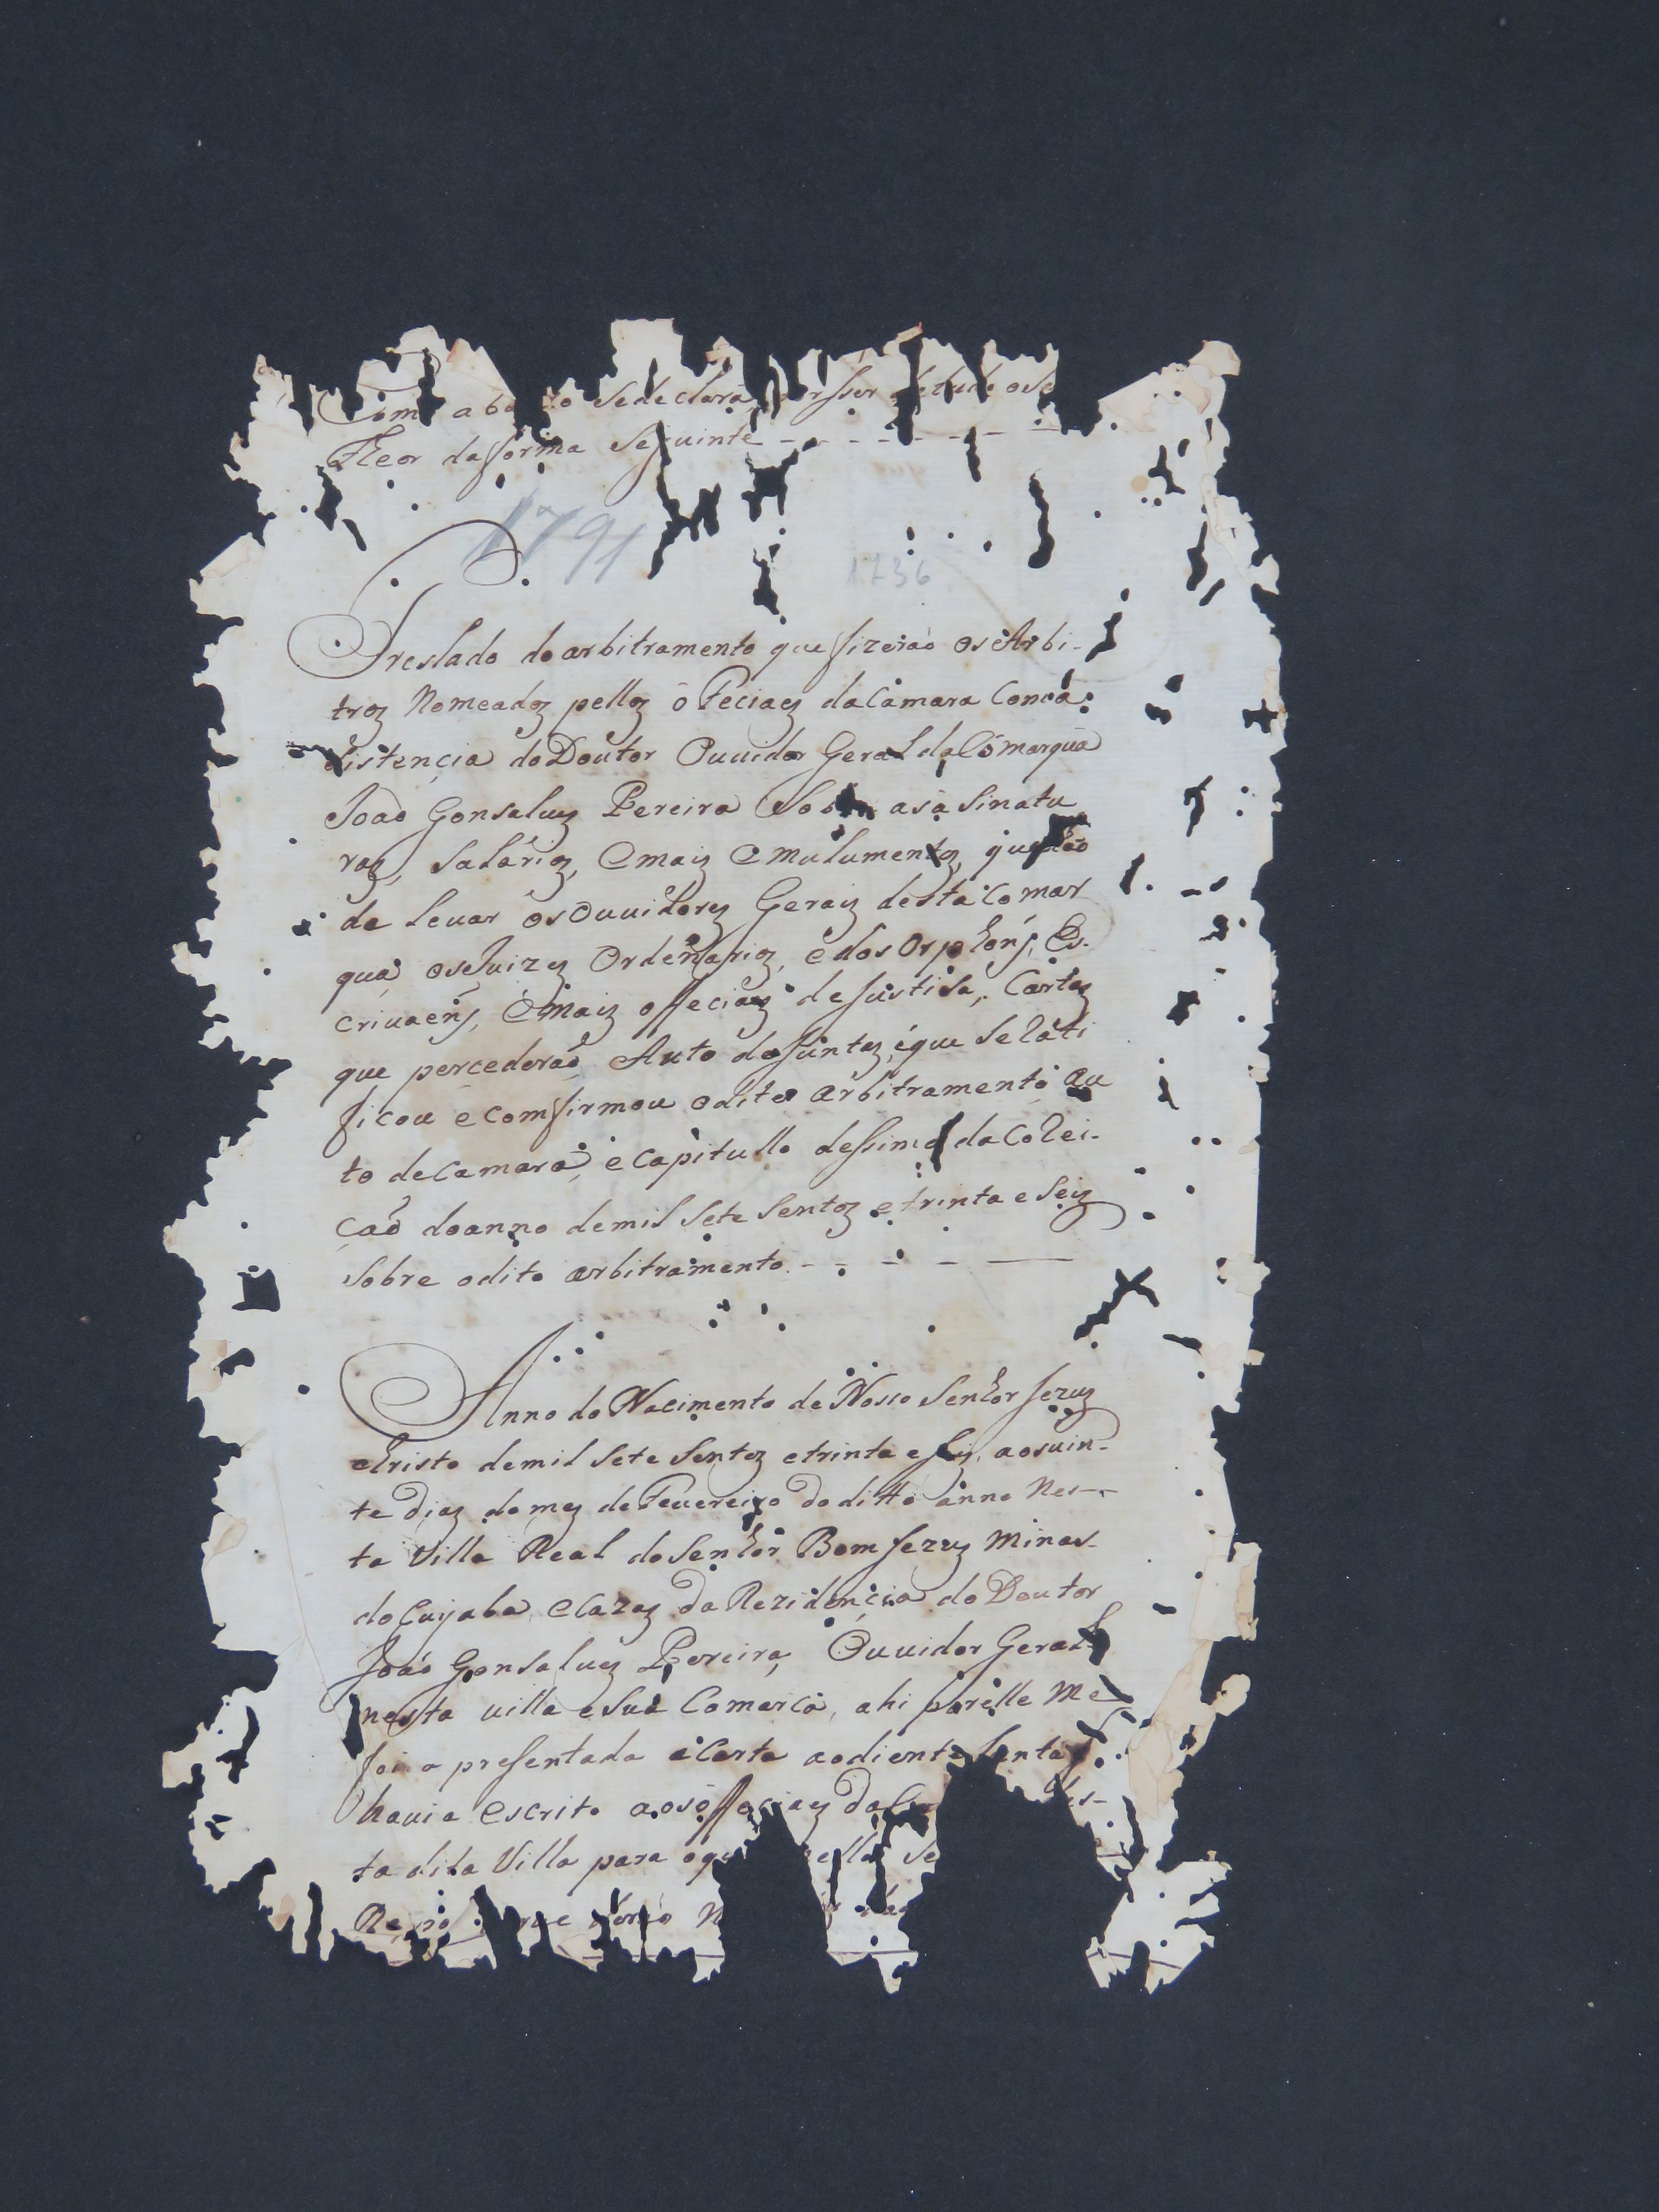 Como abaixo se declara por ser de tudo o se
Theor da forma seguinte
1791
1736
Treslado do arbitramento que fizeraõ os Arbi-
troz Nomeadoz pelloz oFeciaez da Camara Com a
sistencia do Doutor Ouuidor Geral da Comarqua
Joaõ Gonsaluez Pereira Sobre as a Sinatu
raz, Salarioz, E maiz Emulumentoz, que haõ
de leuar os Ouuidorez Geraiz desta Comar
qua os Juizez Ordenarioz, e dos Orphonſ, Es-
criuaenſ, E maiz offeciaez de Justisa, Cartaz
que percederaõ Auto de Juntaz, e que se Rati
ficou e comfirmou o dito arbitramento au
to de Camara, e Capitullo dessimo da Corei-
çaõ do anno de mil Sete Sentoz e trinta e Seiz
Sobre o dito arbitramento
Anno do Nacimento de Nosso Senhor Jezuz
Christo de mil Sete Sentoz e trinta e Seiz, aos uin-
te Diaz do mez de Feuereiro do ditto anno Nes-
ta Villa Real do Senhor Bom Jezuz Minas
do Cuyaba, e Cazaz da Rezidencia do Doutor
Joaõ Gonsaluez Pereira, Ouuidor Geral
nesta uilla e sua Comarca, ahi por elle Me
foi apresentada a Carta ao diente Junta
hauia Escrito aos offeciaez da Nes-
ta dita Villa para o que nella Se